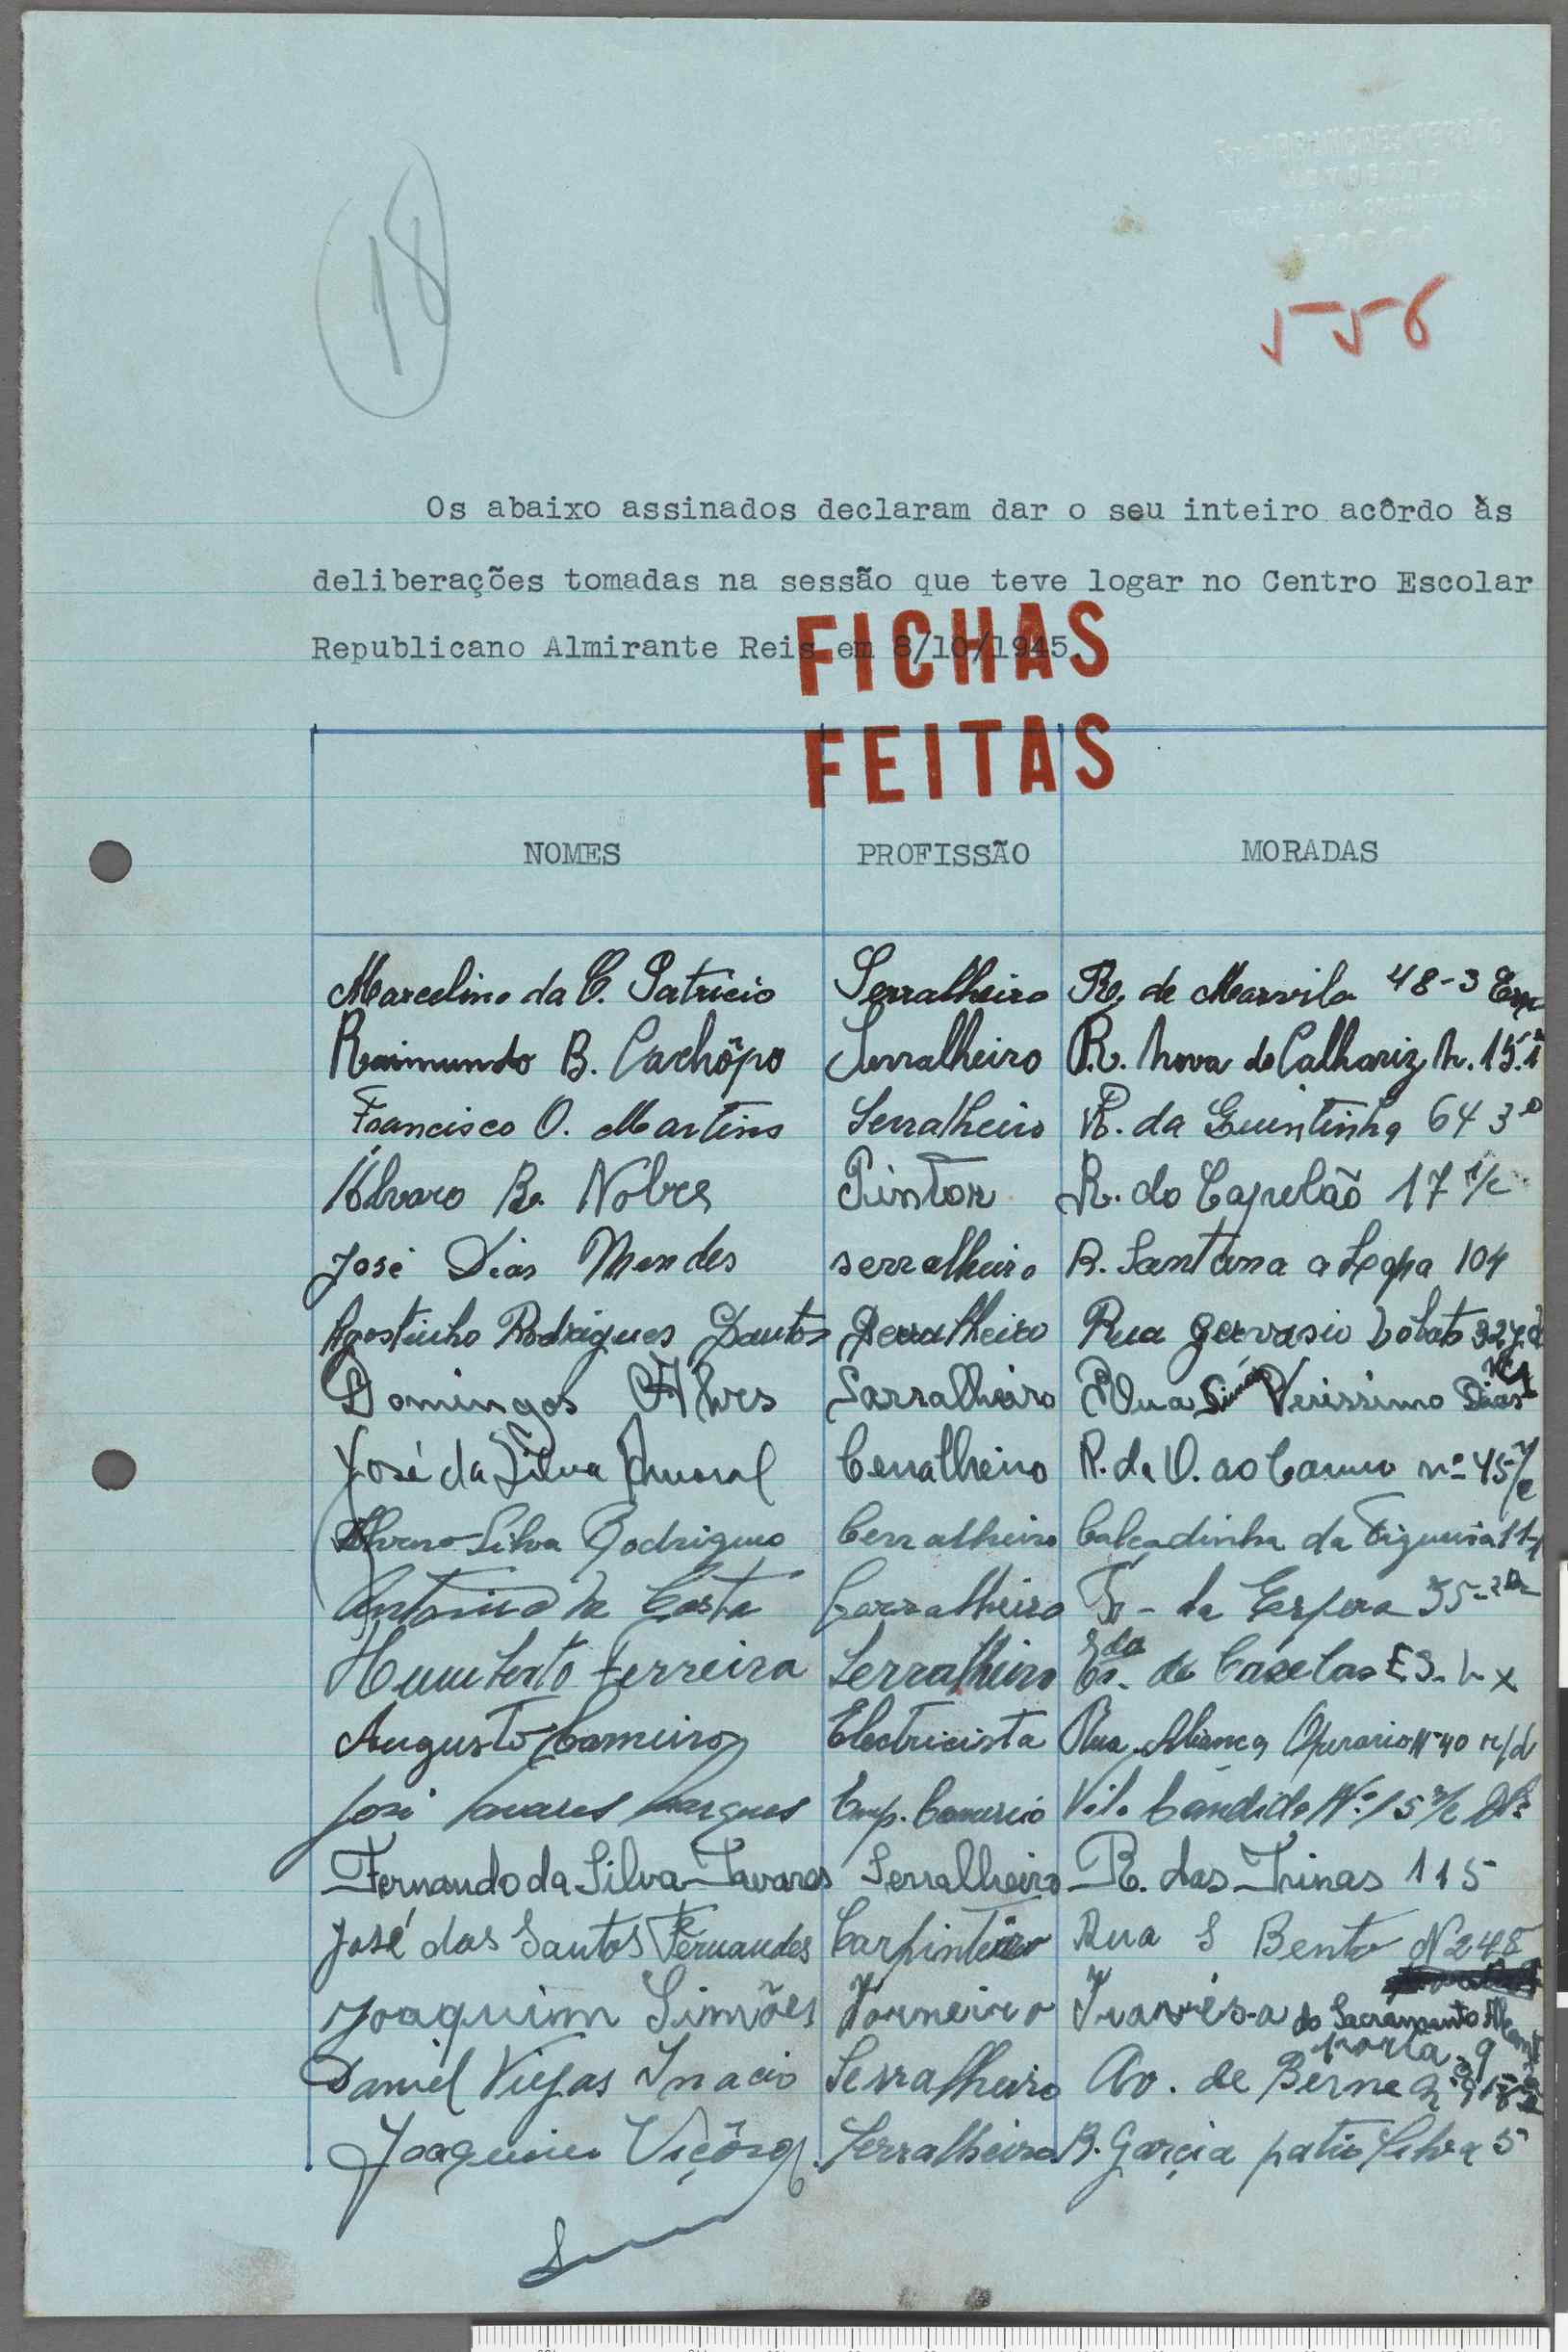 18
556
Os abaixo assinados declaram dar o seu inteiro acôrdo às
deliberações tomadas na sessão que teve logar no Centro Escolar
Republicano Almirante Reis em 8/10/1945.
FICHAS
FEITAS
NOMES PROFISSÃO MORADAS
Marcelino da C. Patricio Serralheiro R. de Marvila 48-3 Esq
Raimundo B. Cachôpo Serralheiro R. Nova do Calhariz N. 15.1º
Francisco O. Martins Serralheiro R. da Quintinha 64 3º
Álvaro R. Nobre Pintor R. do Capelão 17 r/c
José Dias Mendes serralheiro R. Santana a Lapa 104
Agostinho Rodrigues Santos Serralheiro Rua Gervasio Lobato 32
Domingos Alves Sarralheiro Rua Verissimo Dias
José da Silva Amaral Cerralheiro R. da O. ao Carmo nº 45 r/c
Alvaro Silva Rodrigues Cerralheiro Calçadinha da Figueira 11-1
Antonio da Costa Serralheiro Tr - da Espera 35-2º
Humberto Ferreira Serralheiro Es. de Caselas E3. Lx
Augusto Carneiro Electricista Rua Aliança Operario Nº 40 r/d
José Tavares Marques Emp. Comercio Vil. Candida Nº 15 r/c Dº
Fernando da Silva Tavares Serralheiro R. das Trinas 115
José dos Santos Fernandes Carpinteiro Rua S Bento N 248
Joaquim Simões Torneiro Travésa do Sacramento
porta 9
Daniel Viegas Inacio Serralheiro Av. de Berne
Joaquim Viçôso Serralheiro R. Garçia patio Silva 5